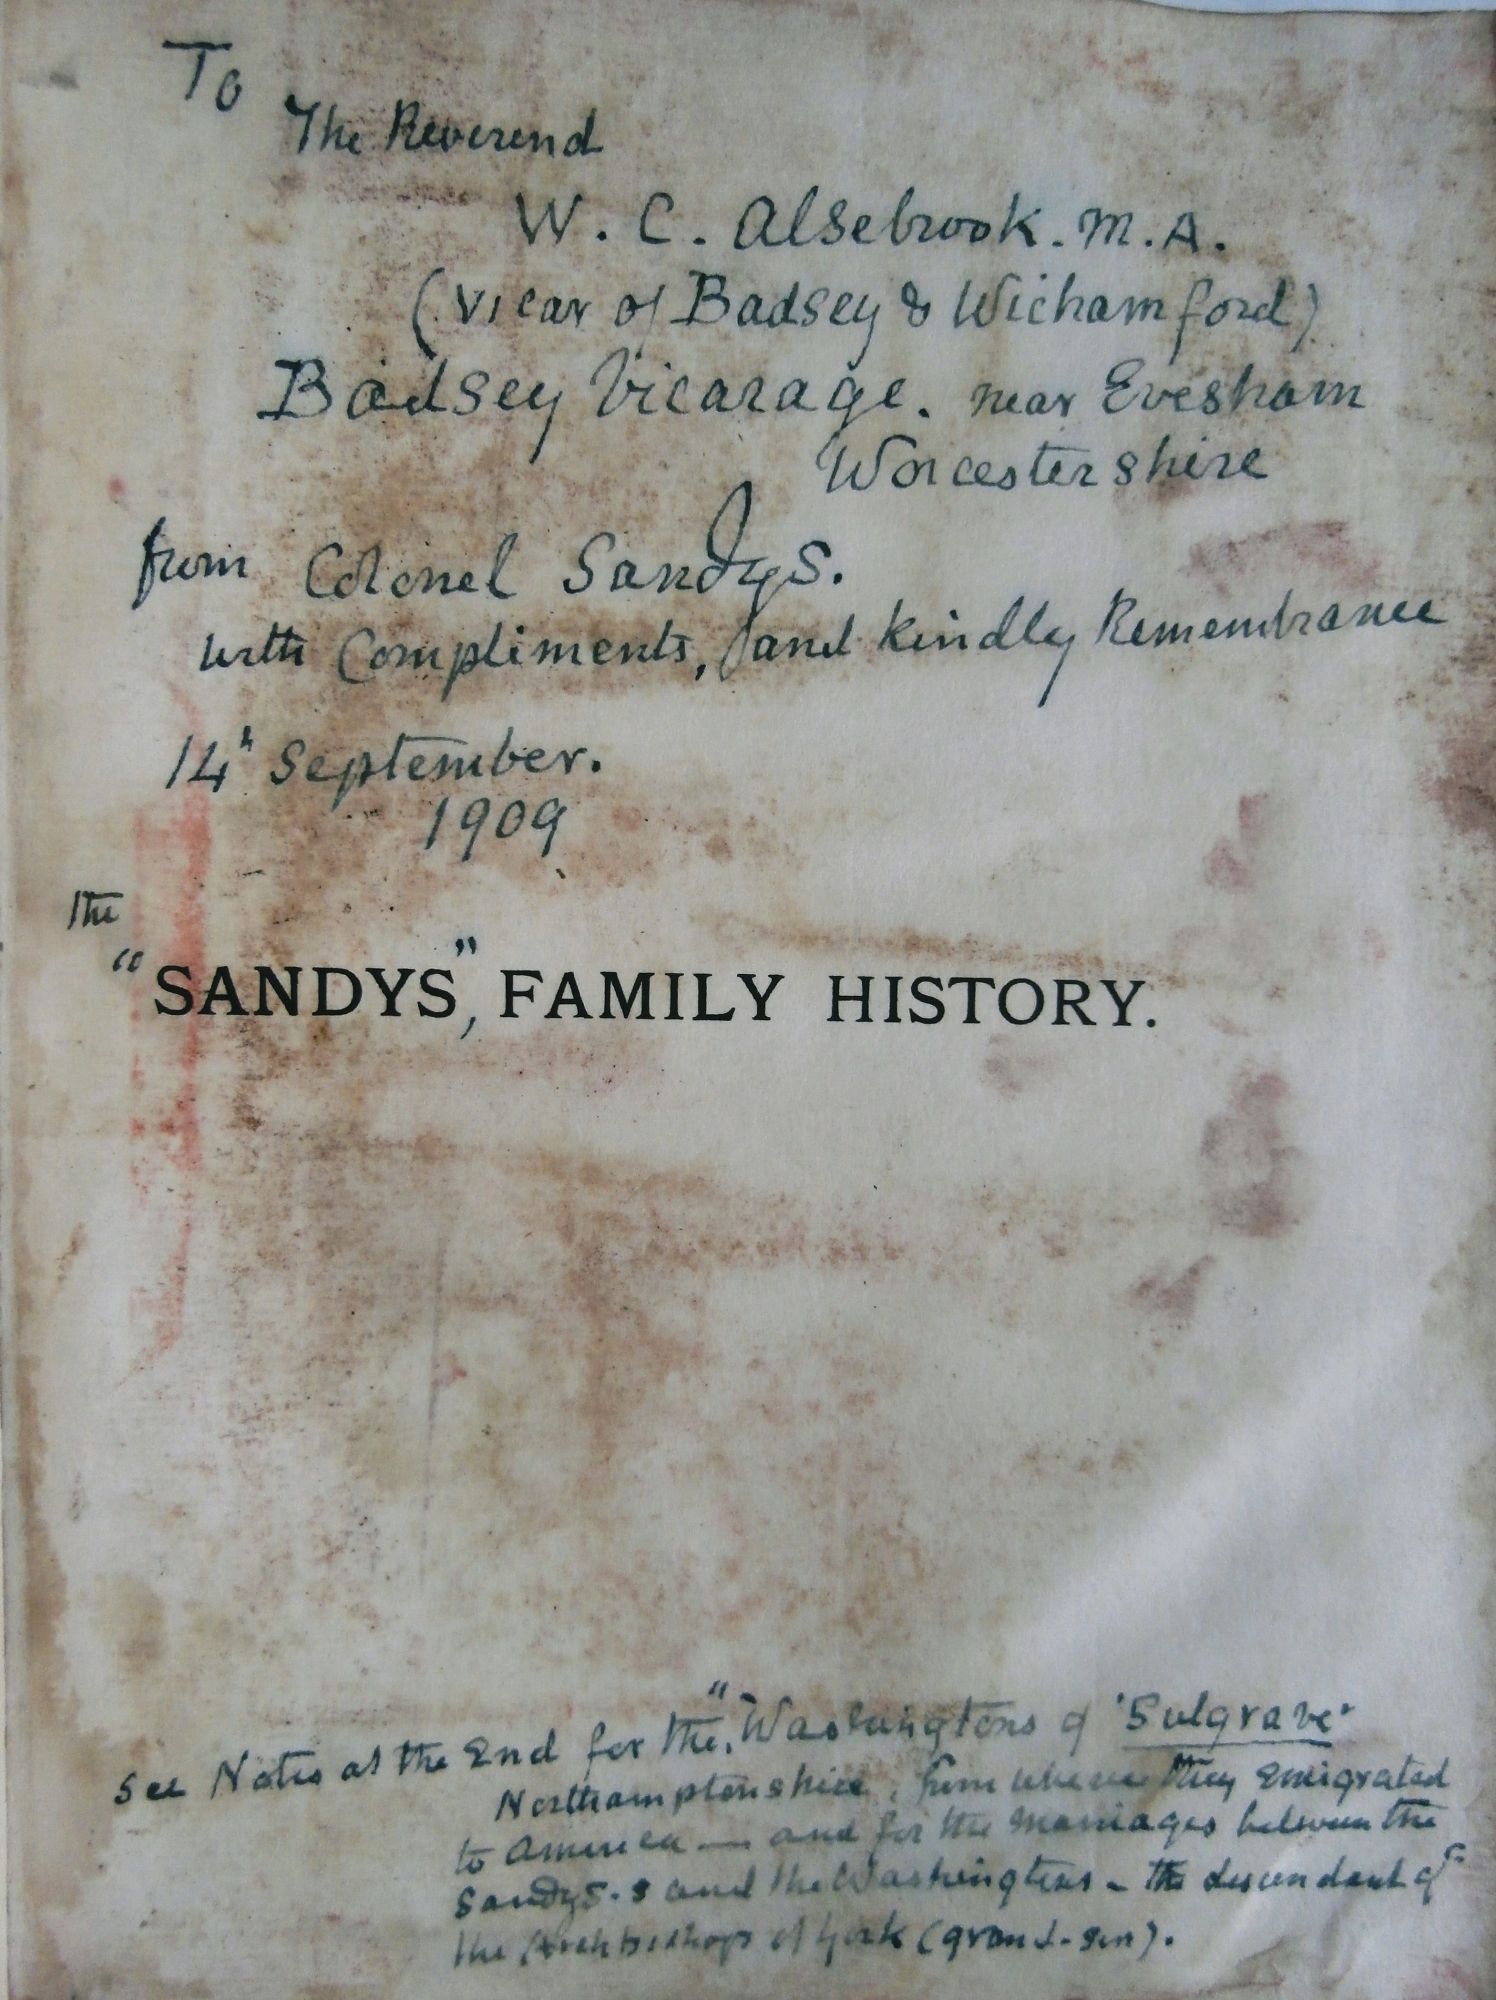 To
The Reverend
W. C. Alsebrook. M. A.
(Vicar of Badsey & Wichamford)
Badsey Vicarage. near Evesham
Worcestershire
from Colonel Sandys.
with Compliments, and kindly Remembrance
14th September.
1909
the
"SANDYS", FAMILY HISTORY.
See Notes at the End for the "Washingtons of 'Sulgrave'
Northamptonshire, from where they Emigrated
to America — and for the Marriages between the
Sandys.s and the Washingtons - the descendant of
the Archbishops of York (grand-son).